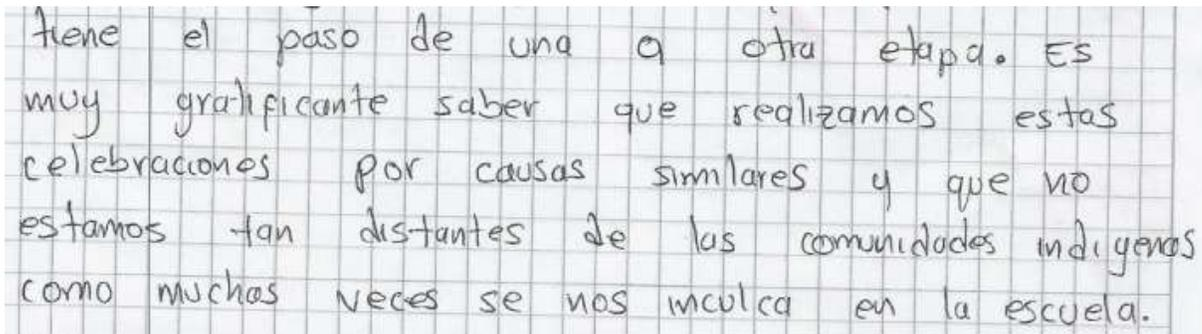 tiene el paso de una a otra etapa. Es
muy gratificante saber que realizamos estas
celebraciones por causas similares y que no
estamos tan distantes de las comunidades indigenas
como muchas veces se nos inculca en la escuela.